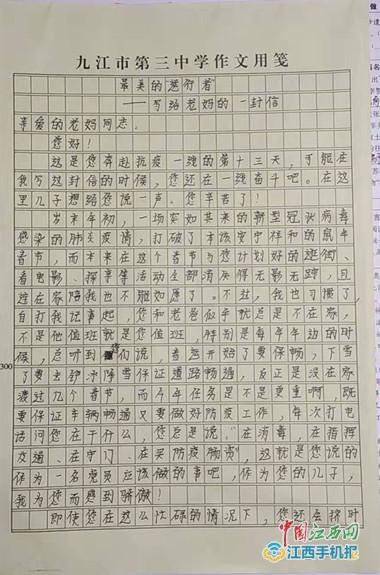 九江市第三中学作文用笺
最美的"逆行者"
——写给老妈的一封信
亲爱的老妈同志:
您好!
这是您奔赴抗疫一线的第十三天,可能在
我写这封信的时候,您还在一线奋斗吧。在这
里儿子想给您说一声:您辛苦了!
岁末年初,一场突如其来的新型冠状病毒
感染的肺炎疫情,打破了本该安宁祥和的鼠年
春节,而本来在这个春节与您计划好的逛街、
看电影、探亲等活动全部消失得无影无踪,且
连在家陪我也不能如愿了。不过,我也习惯了
自打我记事起,您和老爸似乎就总是不在家,
不是他值班就是您值班,特别是每年年边的时
候,总听到您们说,春运开始了要保畅,下雪
300
了要去铲冰除雪保证道路畅通,反正是没在家
渡过几个春节,而今年任务是不是更重啊,既
要保证车辆畅通又要做好防疫工作,每次打电
话问您在干什么,您总是说:"在消毒,在指挥
交通、在守门、在买防疫物资",这就是您说的
作为一名党员应该做的事吧,作为您的儿子,
我为您而感到骄傲!
即使您在这么忙碌的情况下,您还会按时
中国江西网
江西手机报